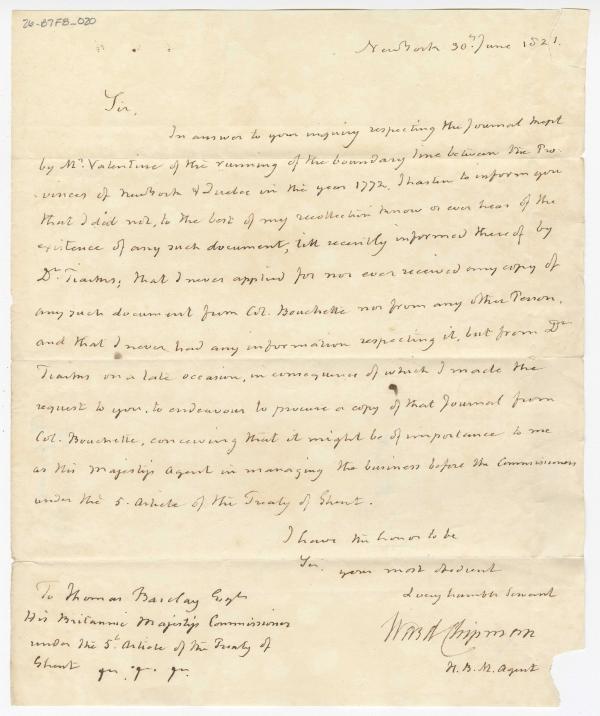 26-B7FB_020
New York 30th June 1821.
Sir,
In answer to your inquiry respecting the Journal kept
by Mr. Valentine of the running of the boundary line between the Pro-
vinces of New York & Quebec in the year 1772, I hasten to inform you
that I did not, to the best of my recollection know or ever hear of the
existence of any such document, till recently informed thereof by
Dr. Tiarks; that I never applied for nor ever received any copy of
any such document from Col. Bouchette nor from any other Person,
and that I never had any information respecting it, but from Dr
Tiarks on a late occasion, in consequence of which I made the
request to you, to endeavour to procure a copy of that Journal from
Col. Bouchette, conceiving that it might be of importance to me
as His Majesty's Agent in managing the business before the Commissioners
under the 5. Article of the Treaty of Ghent.
I have the honor to be
Sir, your most obedient
& very humble Servant
Ward Chipman
H. B. M. Agent
To Thomas Barclay Esqr
His Britannic Majesty's Commissioner
under the 5t Article of the Treaty of
Ghent